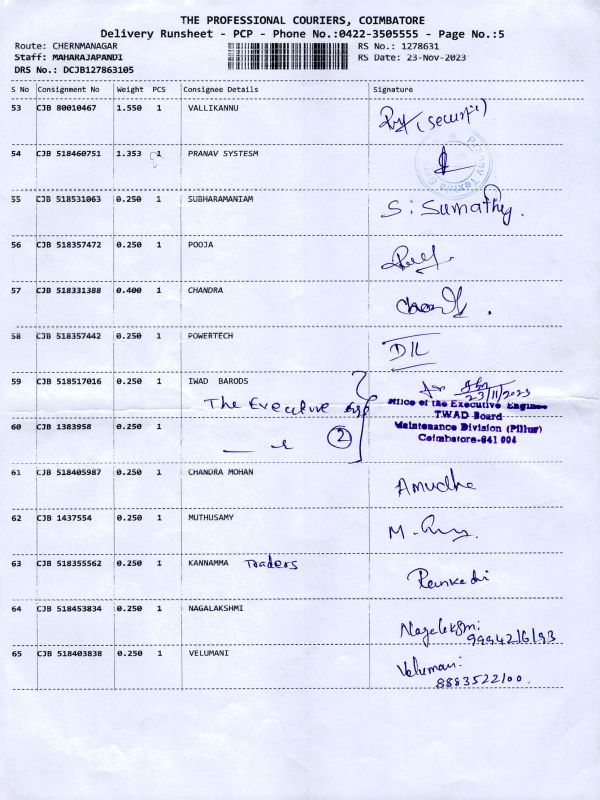 THE PROFESSIONAL COURIERS, COIMBATORE
Delivery Runsheet - PCP - Phone No.:0422-3505555 - Page No.:5
Route: CHERNMANAGAR RS No.: 1278631
Staff: MAHARAJAPANDI RS Date: 23-Nov-2023
DRS No.: DCJB127863105
S No Consignment No Weight PCS Consignee Details Signature
53 CJB 80010467 1.550 1 VALLIKANNU (Securit
54 CJB 518460751 1.353 1 PRANAV SYSTESM
55 CJB 518531063 0.250 1 SUBHARAMANIAM S. Sumathy.
56 CJB 518357472 0.250 1 POOJA
57 CJB 518331388 0.400 1 CHANDRA
58 CJB 518357442 0.250 1 POWERTECH
59 CJB 518517016 0.250 1 IWAD BARODS 23/11/2023
The Executive
Office of the Executive Engineer
TWAD Board
60 CJB 1383958 0.250 1 Maintenance Division (Pillur)
2 Coimbatore-641 004
61 CJB 518405987 0.250 1 CHANDRA MOHAN Amudha
62 CJB 1437554 0.250 1 MUTHUSAMY
63 CJB 518355562 0.250 1 KANNAMMA Traders
64 CJB 518453834 0.250 1 NAGALAKSHMI Nagalakshmi
9994216193
65 CJB 518403838 0.250 1 VELUMANI Velumani
8883522100